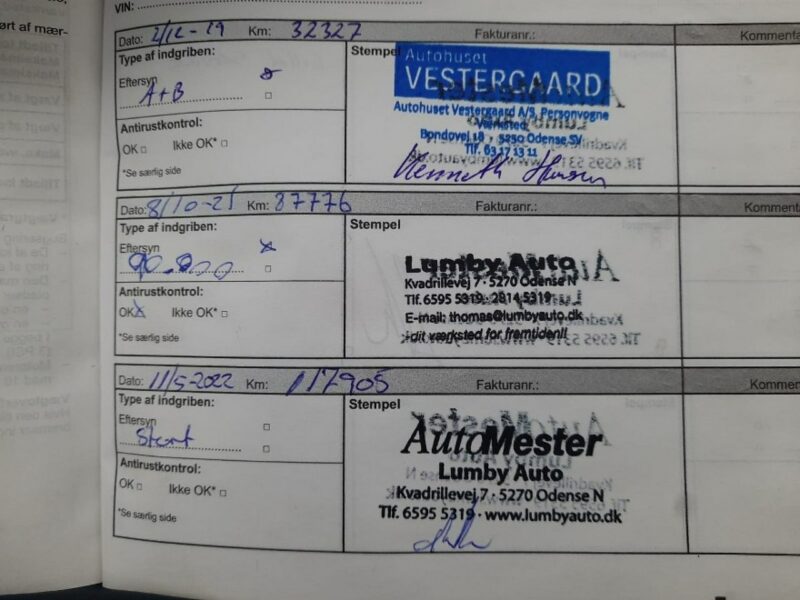 VIN:
ørt af mær-
Dato: 2/12-19 Km: 32327 Fakturanr.: Kommenta
Type af indgriben:
Stempel
Eftersyn
A+B
Antirustkontrol:
OK Ikke OK*
*Se særlig side
Autohuset
VESTERGAARD
Autohuset Vestergaard A/S Personvogne
Værksted
Bondovej 18 · 5250 Odense SV
Tlf. 63 17 13 11
Kenneth Hansen
Dato: 8/10-21 Km: 87776 Fakturanr.: Kommenta
Type af indgriben:
Stempel
Eftersyn
90.000
Antirustkontrol:
OK Ikke OK*
*Se særlig side
Lumby Auto
Kvadrillevej 7 · 5270 Odense N
Tlf. 6595 5319, 2814 5319
E-mail: thomas@lumbyauto.dk
- dit værksted for fremtiden!!
Dato: 11/5-2022 Km: 117905 Fakturanr.: Komment
Type af indgriben:
Stempel
Eftersyn
Stort
Antirustkontrol:
OK Ikke OK*
*Se særlig side
AutoMester
Lumby Auto
Kvadrillevej 7 · 5270 Odense N
Tlf. 6595 5319 · www.lumbyauto.dk